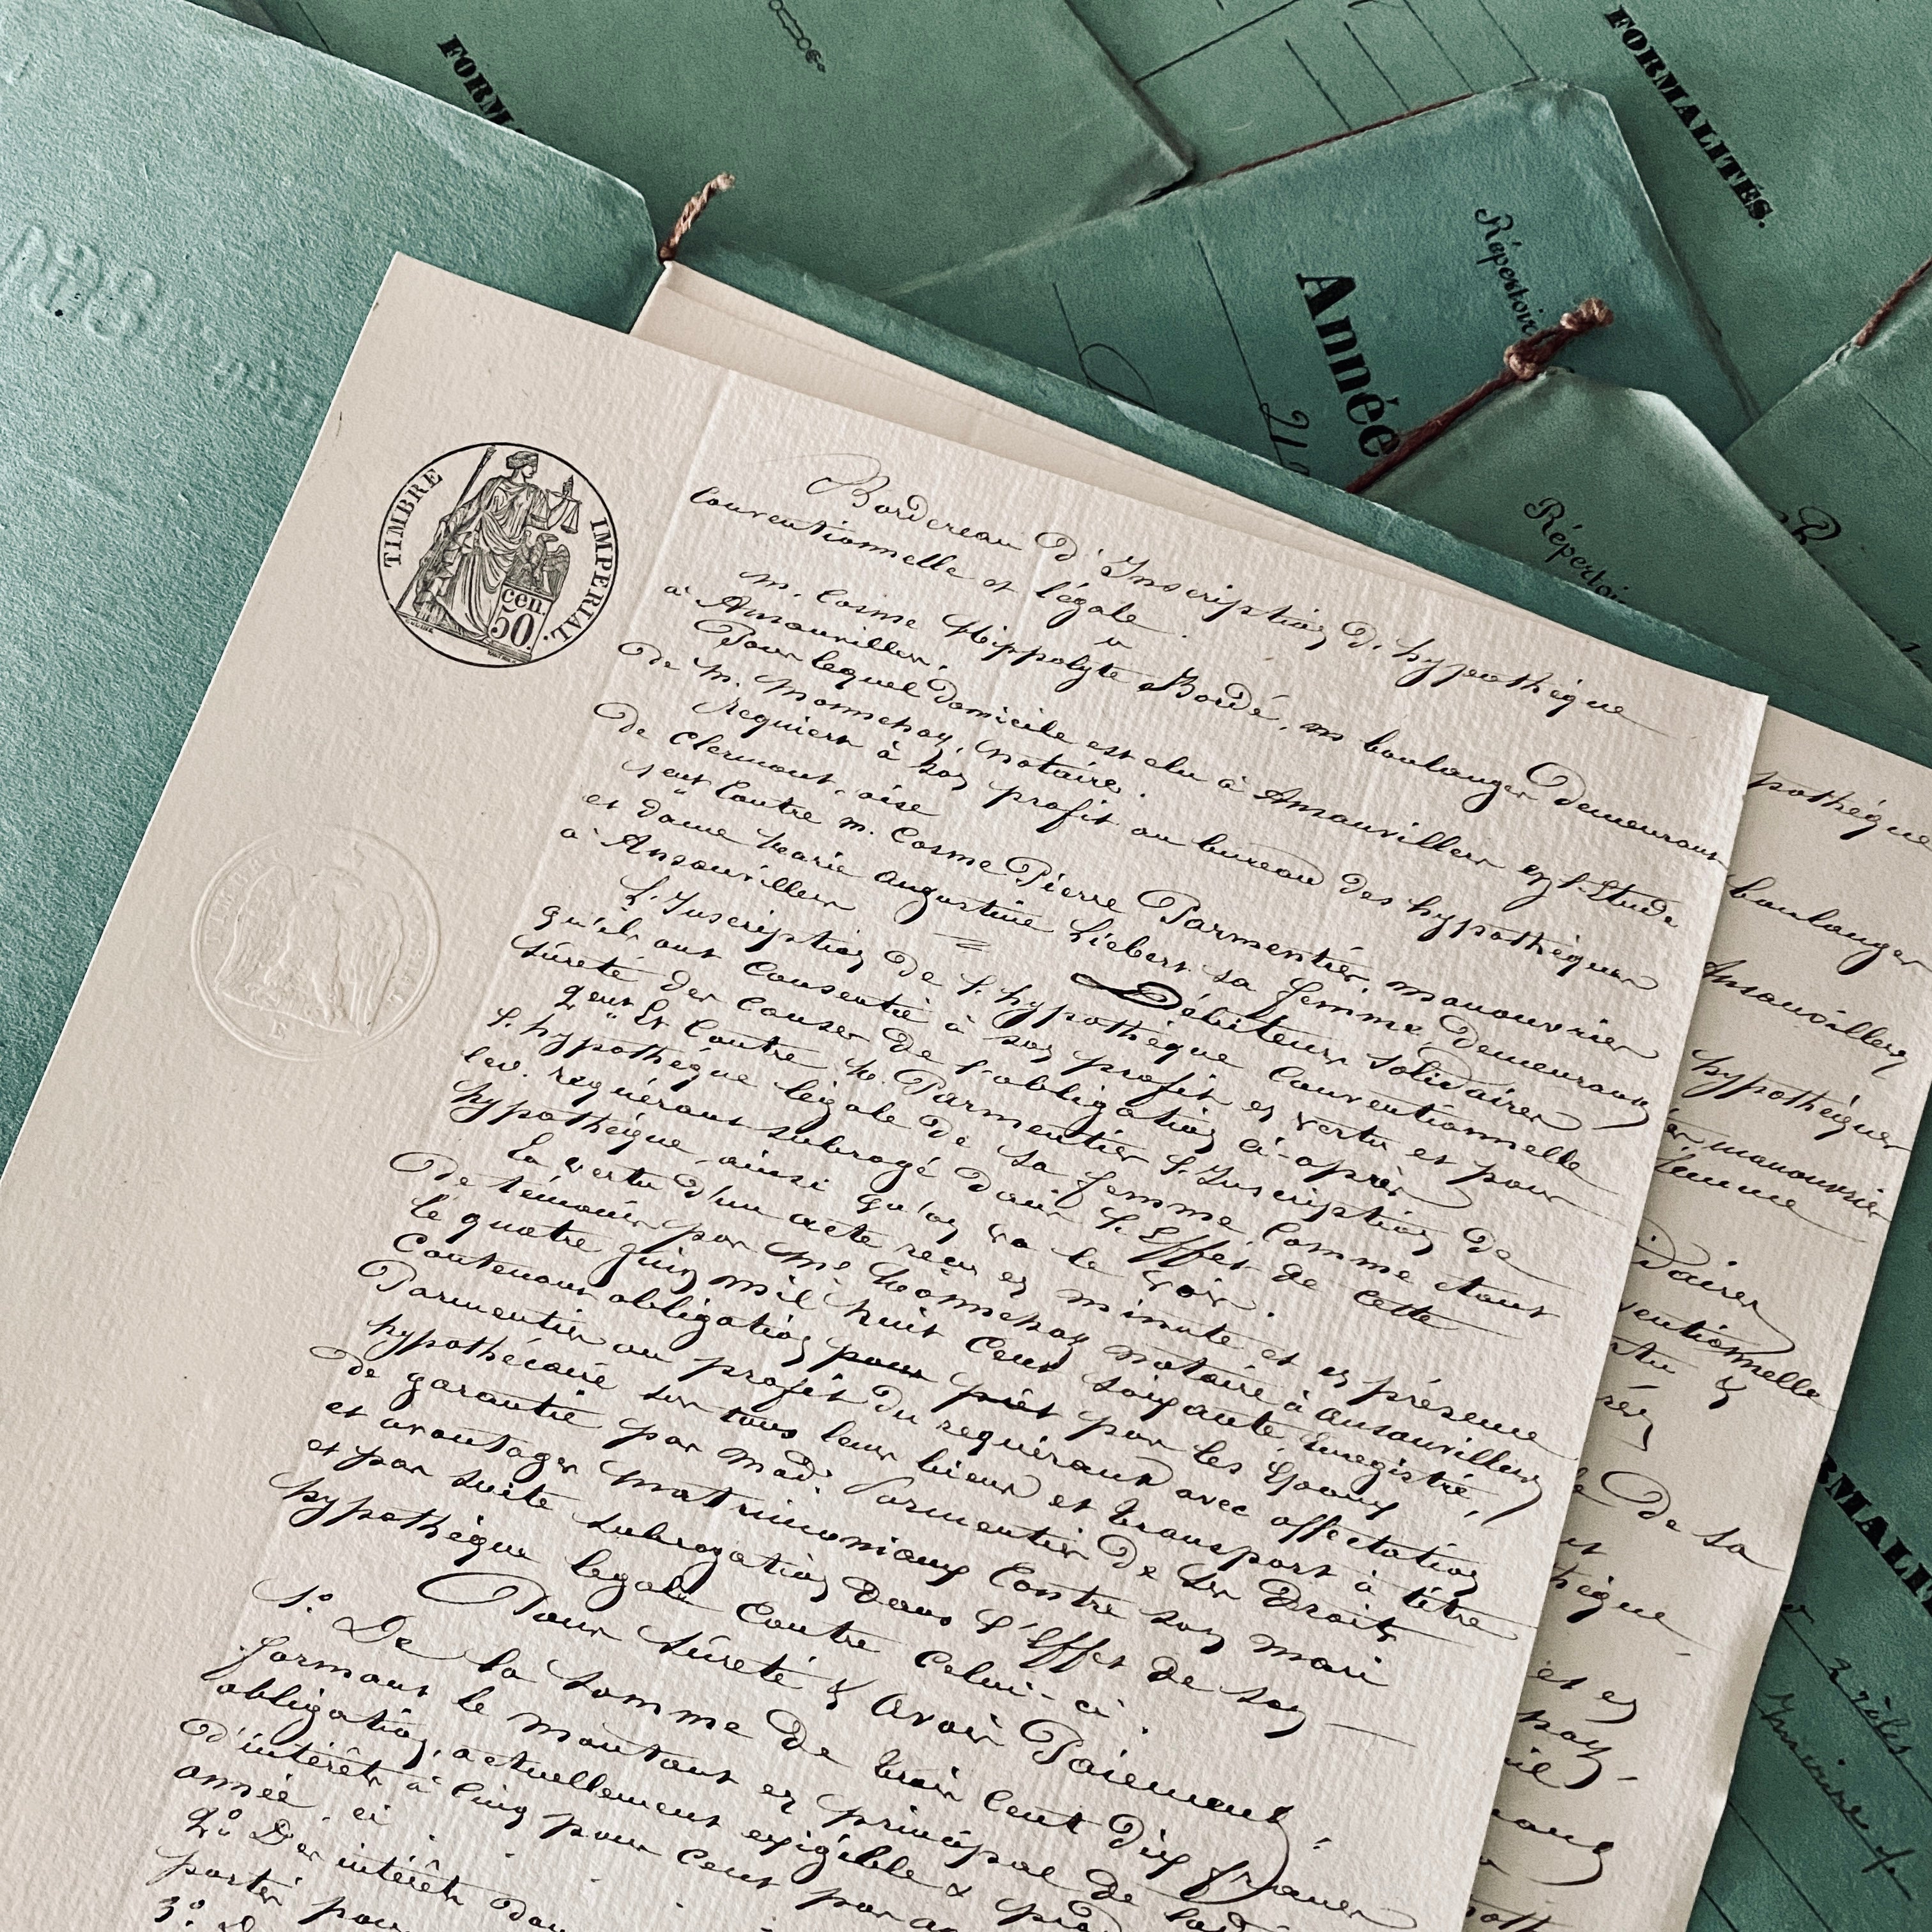 FORM
FORMALITÉS.
Répertoir
Année
Répertoi
TIMBRE IMPÉRIAL.
50 cen.
Bordereau d'Inscription d'hypothèque
Conventionnelle et légale.
M. Cosme Hippolyte Bordé, md boulanger demeurant
à Ansauvillers.
Pour lequel domicile est élu à Ansauvillers en l'Etude
de M. Monnehay, notaire.
Requiert à son profit au bureau des hypothèques
de Clermont, oise
1ent Contre M. Cosme Pierre Parmentier, manouvrier
et dame Marie Augustine Liebert sa femme, demeurant
à Ansauvillers = Débiteurs Solidaires
L'Inscription de l'hypothèque Conventionnelle
qu'ils ont Consentie à son profit en vertu et pour
sûreté des Causes de l'obligation ci-après
2ent Et Contre M. Parmentier l'Inscription de
l'hypothèque légale de sa femme Comme étant
led. requérant subrogé dans l'Effet de cette
hypothèque, ainsi qu'on va le voir.
En vertu d'un acte reçu en minute et en présence
de témoins par Me Monnehay notaire à Ansauvillers
le quatre juin mil huit Cent soixante Enregistré,
Contenant obligation pour prêt par les Epoux
Parmentier au profit du requérant avec affectation
hypothécaire sur tous leurs biens et transport à titre
de garantie par Made Parmentier de ses Droits
et avantages matrimoniaux Contre son mari
et par suite subrogation dans l'Effet de son
hypothèque légale Contre Celui-ci.
Pour Sûreté & Avoir Paiement,
1.° De la somme de trois Cent dix francs
formant le montant en principal de lad.
obligation, actuellement exigible &
d'intérêts à Cinq pour Cent par an
année, ci
2.° Des intérêts dont
porter pour
3.°
pothèque
boulanger
Ansauvillers
hypothèques
manouvrier
femme
idaires
ventionnelle
de sa
thèque
FORMALI